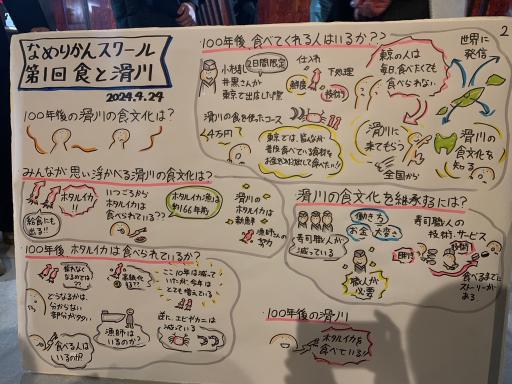 なめりかんスクール
第1回 食と滑川
2024.9.24
100年後の滑川の食文化は?
みんなが思い浮かべる滑川の食文化は?
ホタルイカ!!
給食にも
出る!!
いつごろから
ホタルイカは
食べられている??
ホタルイカ漁は
約166年前
滑川の
ホタルイカは
新鮮
漁師さんの
努力
100年後、ホタルイカは食べられているか?
どうなるかは、
分からない
部分が大きい
食べる人は
いるのか?
漁師は
いるのか?
ここ10年は減って
いたが、今年は
とても増えている
逆に、エビやカニは
減っている
100年後、食べてくれる人はいるか??
2日間限定
東京で出店した際
仕入れ
鮮度
下処理
技術
滑川の食を使ったコース
4万円
東京では、皆んなが
普段食べている食材を
お金を出して食べたい!!
東京の人は
毎日食べたくても
食べられない
世界に
発信
滑川に
来てもらう
全国から
滑川の
食文化を
知る
滑川の食文化を継承するには?
寿司職人が
減っている
働き方
お金 大事さ
職人が
必要
寿司職人の
技術・サービス
技術
食べるまでに
ストーリーが
ある
100年後の滑川
ホタルイカを
食べている!!
2